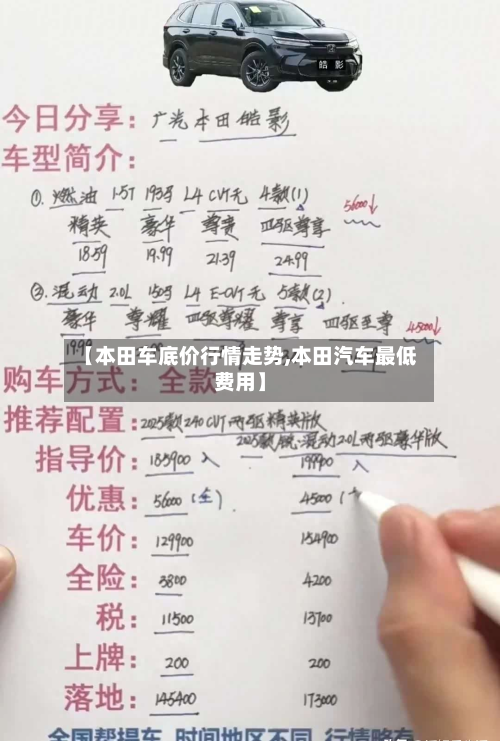 皓 影
今日分享: 广汽本田皓影
车型简介:
①. 燃油 1.5T 193马 L4 CVT无 4款(1)
56000↓
精英 豪华 尊贵 四驱尊享
18.59 19.99 21.39 24.99
②. 混动 2.0L 150马 L4 E-CVT无 5款(2).
豪华 尊耀 四驱尊耀 尊享 四驱至尊
45000↓
19.99
【本田车底价行情走势,本田汽车最低
费用】
购车方式: 全款
推荐配置: 2025款240CVT两驱精英版
2025款锐·混动2.0L两驱豪华版
指导价: 185900 入 199900 入
优惠: 56000 (全). 45000 (
车价: 129900 154900
全险: 3800 4200
税: 11500 13700
上牌: 200 200
落地: 145400 173000
全国帮提车,时间地区不同,行情略有